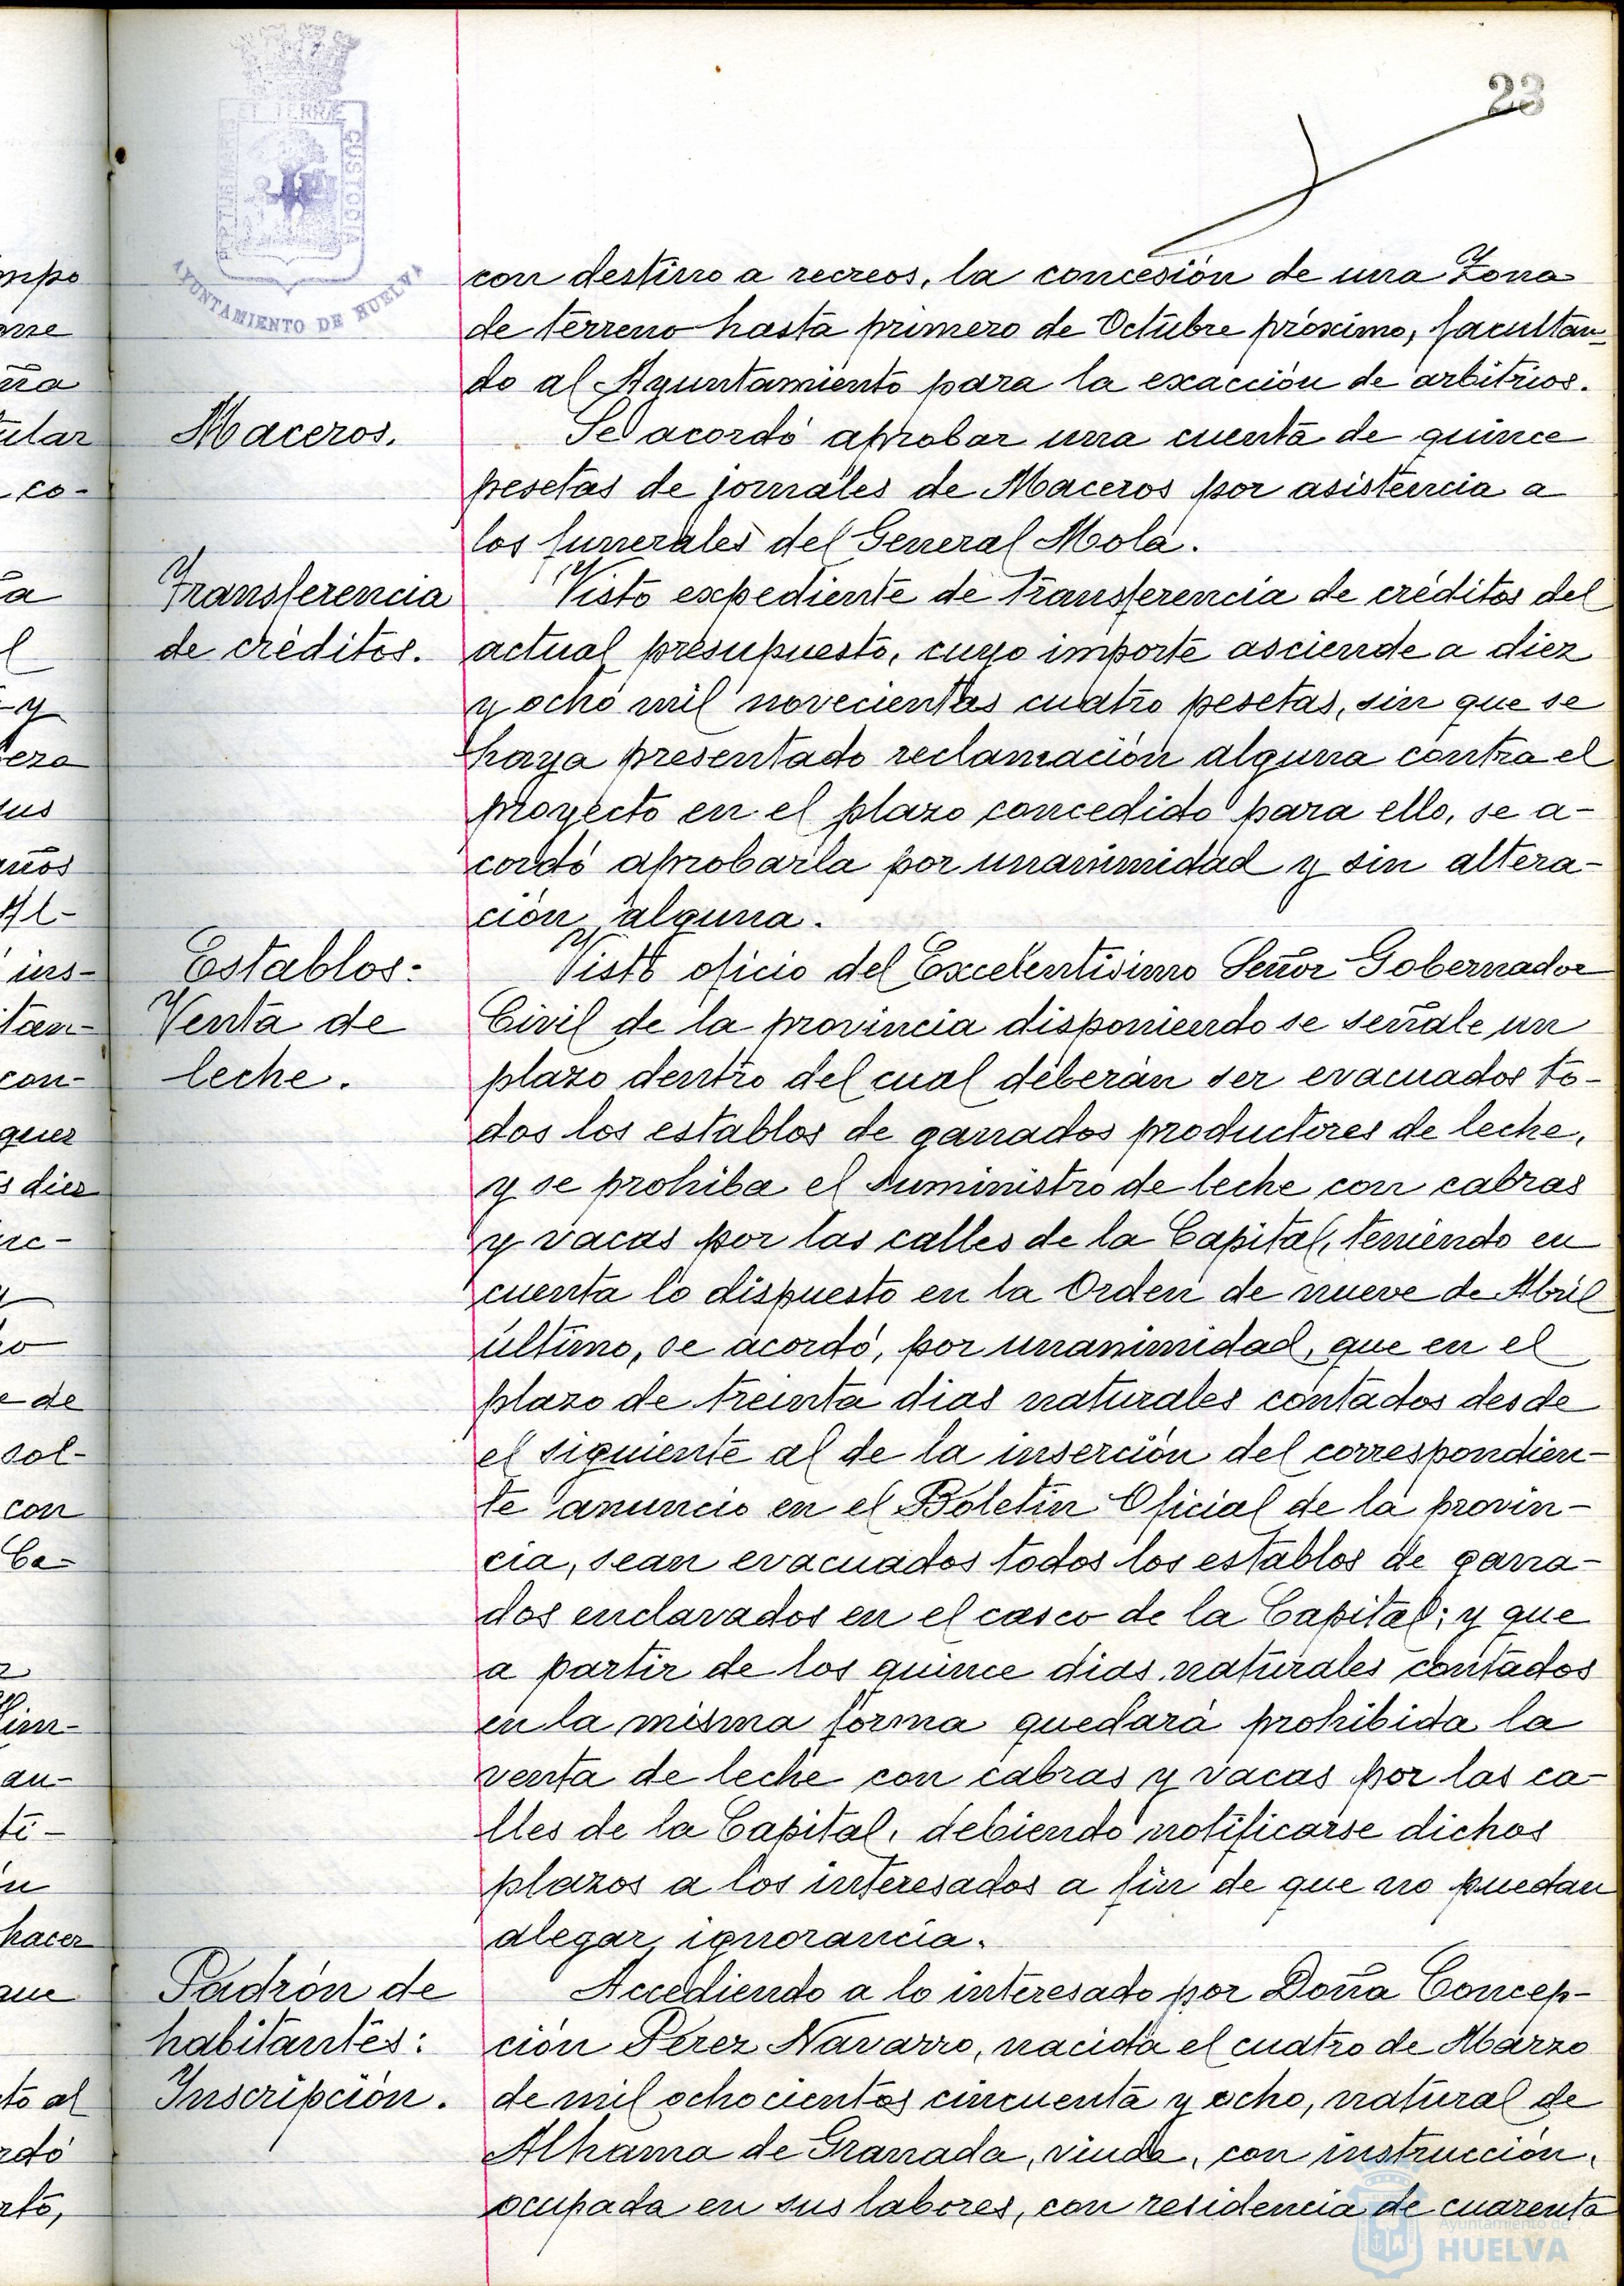 23
PORTUS MARIS ET TERRAE CUSTODIA
AYUNTAMIENTO DE HUELVA
con destino a recreos, la concesión de una zona
de terreno hasta primero de Octubre próximo, facultan-
do al Ayuntamiento para la exacción de arbitrios.
Maceros.
Se acordó aprobar una cuenta de quince
pesetas de jornales de Maceros por asistencia a
los funerales del General Mola.
Transferencia
de créditos.
Visto expediente de transferencia de créditos del
actual presupuesto, cuyo importe asciende a diez
y ocho mil novecientas cuatro pesetas, sin que se
haya presentado reclamación alguna contra el
proyecto en el plazo concedido para ello, se a-
cordó aprobarla por unanimidad y sin altera-
ción alguna.
Establos:
Venta de
leche.
Visto oficio del Excelentísimo Señor Gobernador
Civil de la provincia disponiendo se señale un
plazo dentro del cual deberán ser evacuados to-
dos los establos de ganados productores de leche,
y se prohiba el suministro de leche con cabras
y vacas por las calles de la Capital, teniendo en
cuenta lo dispuesto en la Orden de nueve de Abril
último, se acordó, por unanimidad, que en el
plazo de treinta dias naturales contados desde
el siguiente al de la inserción del correspondien-
te anuncio en el Boletín Oficial de la provin-
cia, sean evacuados todos los establos de gana-
dos enclavados en el casco de la Capital; y que
a partir de los quince dias naturales contados
en la misma forma quedará prohibida la
venta de leche con cabras y vacas por las ca-
lles de la Capital, debiendo notificarse dichos
plazos a los interesados a fin de que no puedan
alegar ignorancia.
Padrón de
habitantes:
Inscripción.
Accediendo a lo interesado por Doña Concep-
ción Pérez Navarro, nacida el cuatro de Marzo
de mil ochocientos cincuenta y ocho, natural de
Alhama de Granada, viuda, con instrucción,
ocupada en sus labores, con residencia de cuarenta
Ayuntamiento de
HUELVA